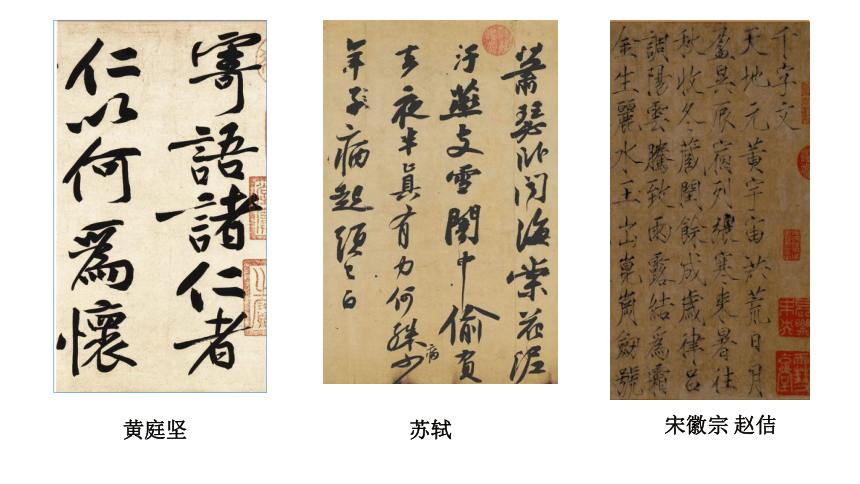 寄語諸仁者
仁以何爲懷
蕭瑟卧聞海棠花泥
汙燕支雪闇中偷負
去夜半真有力何殊少
病
年子病起頭已白
千字文
天地元黃宇宙洪荒日月
盈昃辰宿列張寒來暑往
秋收冬藏閏餘成歲律呂
調陽雲騰致雨露結為霜
金生麗水玉出崑崗劍號
黄庭坚
苏轼
宋徽宗 赵佶